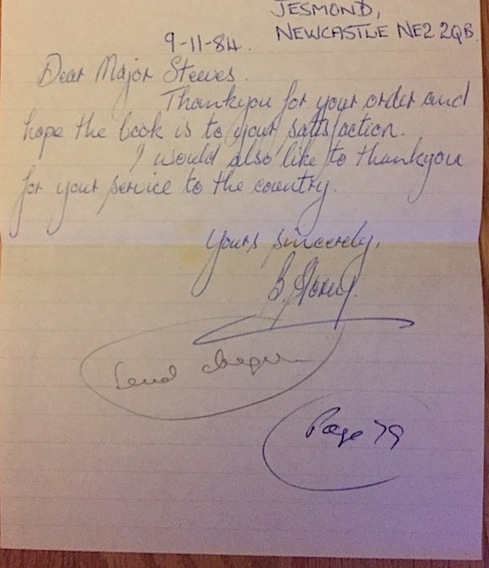 JESMOND,
NEWCASTLE NE2 2QB
9-11-84.
Dear Major Steeves.
Thankyou for your order and
hope the book is to your satisfaction.
I would also like to thankyou
for your service to the country.
Yours sincerely,
B.
Send cheque
Page 79